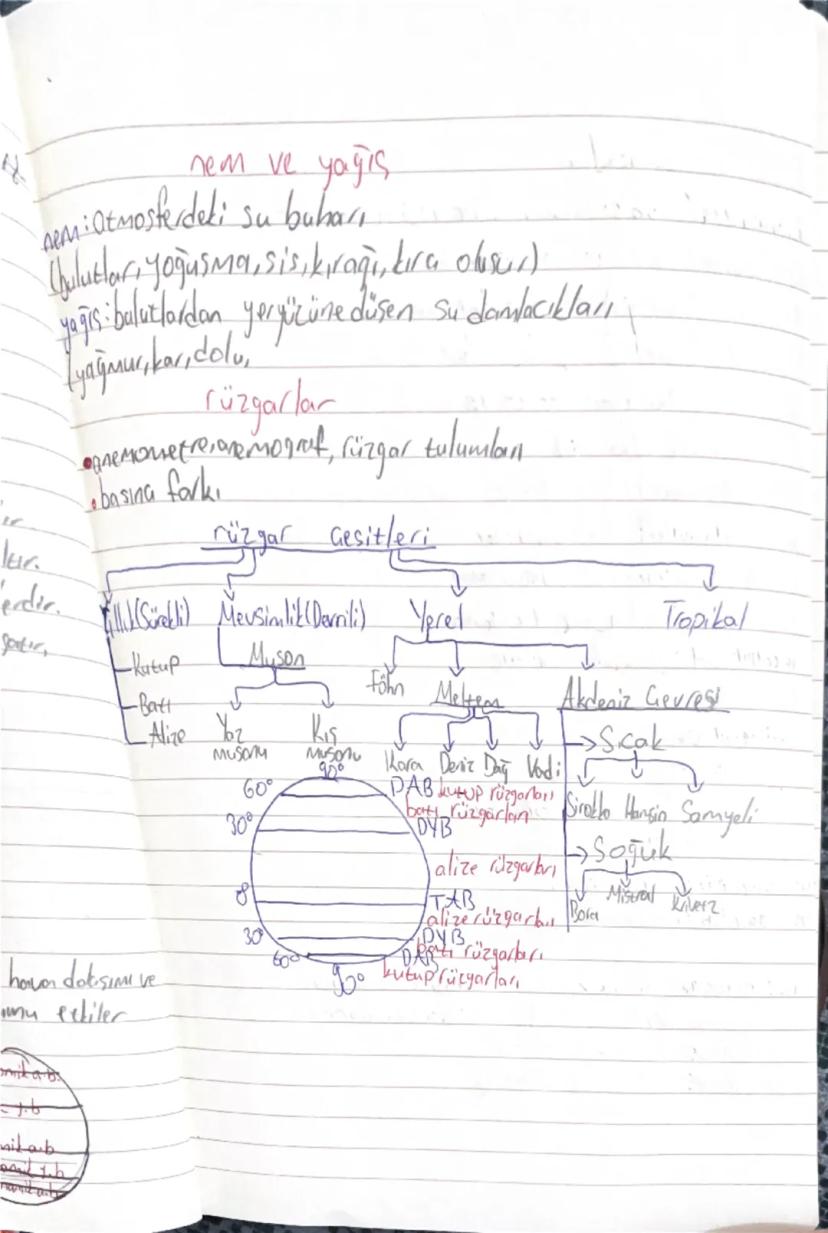 nem ve yağış
nem: Atmosferdeki su buharı
(bulutlar, yoğuşma, sis, kırağı, kıra oluşur)
yağış: bulutlardan yeryüzüne düşen su damlacıkları
(yağmur, kar, dolu,
rüzgarlar
• anemometre, anemograf, rüzgar tulumları
• basına farkı
rüzgar Çeşitleri
Yıllık (Sürekli) Mevsimlik (Devrili) Yerel Tropikal
Kutup
Batı
Alize
Muson
Yaz musonu
Kış musonu
Föhn Meltem Akdeniz Çevresi
Kara Deniz Dağ Vadi
Sıcak
Sirokko Hamsin Samyeli
Soğuk
Bora Mistral Krivetz
90°
60° DAB kutup rüzgarları
batı rüzgarları
30° DYB
alize rüzgarları
0° TAB
alize rüzgarları
30° DYB
batı rüzgarları
60° DAB
kutup rüzgarları
90°
hava dolaşımı ve
etkiler
y.b
a.b